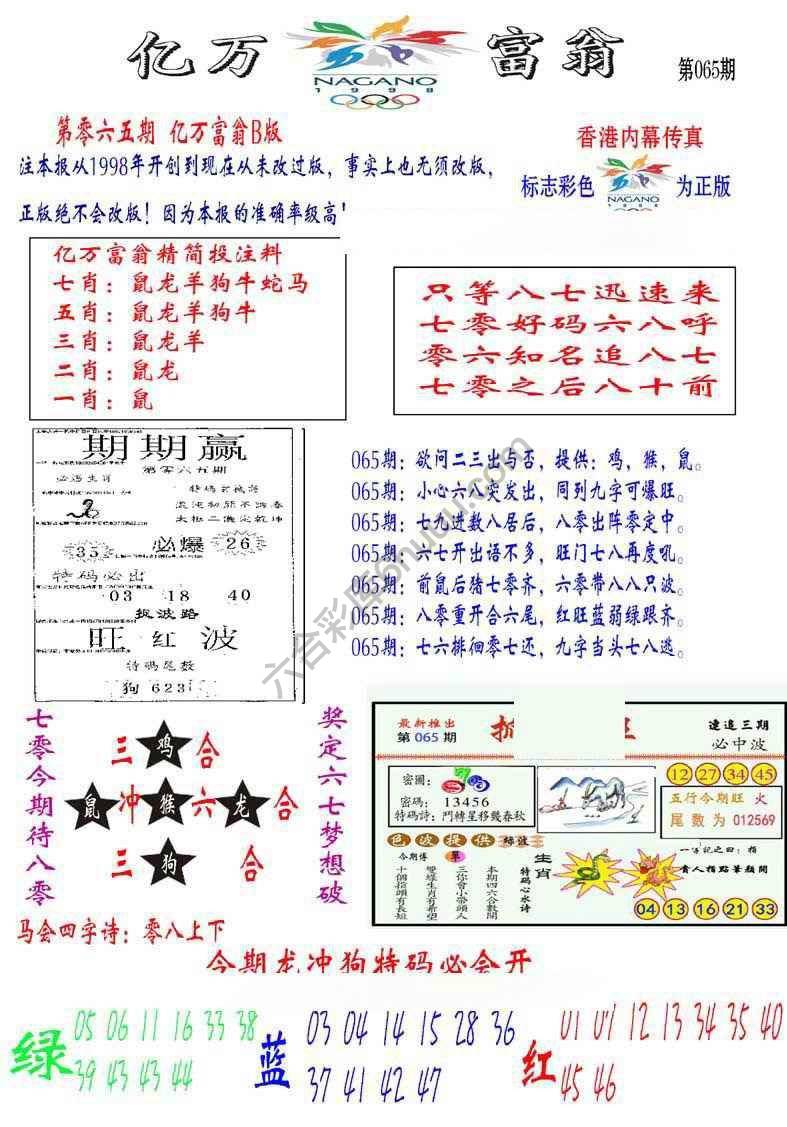 亿万 富翁
NAGANO
1998
第065期
第零六五期 亿万富翁B版
注本报从1998年开创到现在从未改过版，事实上也无须改版，
正版绝不会改版！因为本报的准确率级高!
香港内幕传真
标志彩色 NAGANO 1998 为正版
亿万富翁精简投注料
七肖：鼠龙羊狗牛蛇马
五肖：鼠龙羊狗牛
三肖：鼠龙羊
二肖：鼠龙
一肖：鼠
只等八七迅速来
七零好码六八呼
零六知名追八七
七零之后八十前
期期赢
第零六五期
必遇生肖
35 必爆 26
特码必出
03 18 40
捉波路
旺红波
特码尾数
狗 623
065期：欲问二三出与否，提供：鸡，猴，鼠。
065期：小心六八突发出，同到九字可爆旺。
065期：七九进数八居后，八零出阵零定中。
065期：六七开出语不多，旺门七八再度吼。
065期：前鼠后猪七零齐，六零带八八只波。
065期：八零重开合六尾，红旺蓝弱绿跟齐。
065期：七六徘徊零七还，九字当头七八逃。
七零今期待八零
三 鸡 合
鼠 冲 猴 六 龙 合
三 狗 合
奖定六七梦想破
马会四字诗：零八上下
最新推出
第 065 期
速追三期
必中波
密圖：
密碼： 13456
特碼詩：鬥轉星移幾春秋
12 27 34 45
五行今期旺 火
尾数为 012569
色波提供 绿波
今期博 單
本期四六合數開
三你會小帶頭人
雙樣生肖有希望
十個指頭有長短
特码心水诗
生肖
一字記之曰：指
貴人指點筆類開
04 13 16 21 33
今期龙冲狗特码必会开
绿 05 06 11 16 33 38
39 43 43 44
蓝 03 04 14 15 28 36
37 41 42 47
红 01 07 12 13 34 35 40
45 46
六合彩库6hutu.com